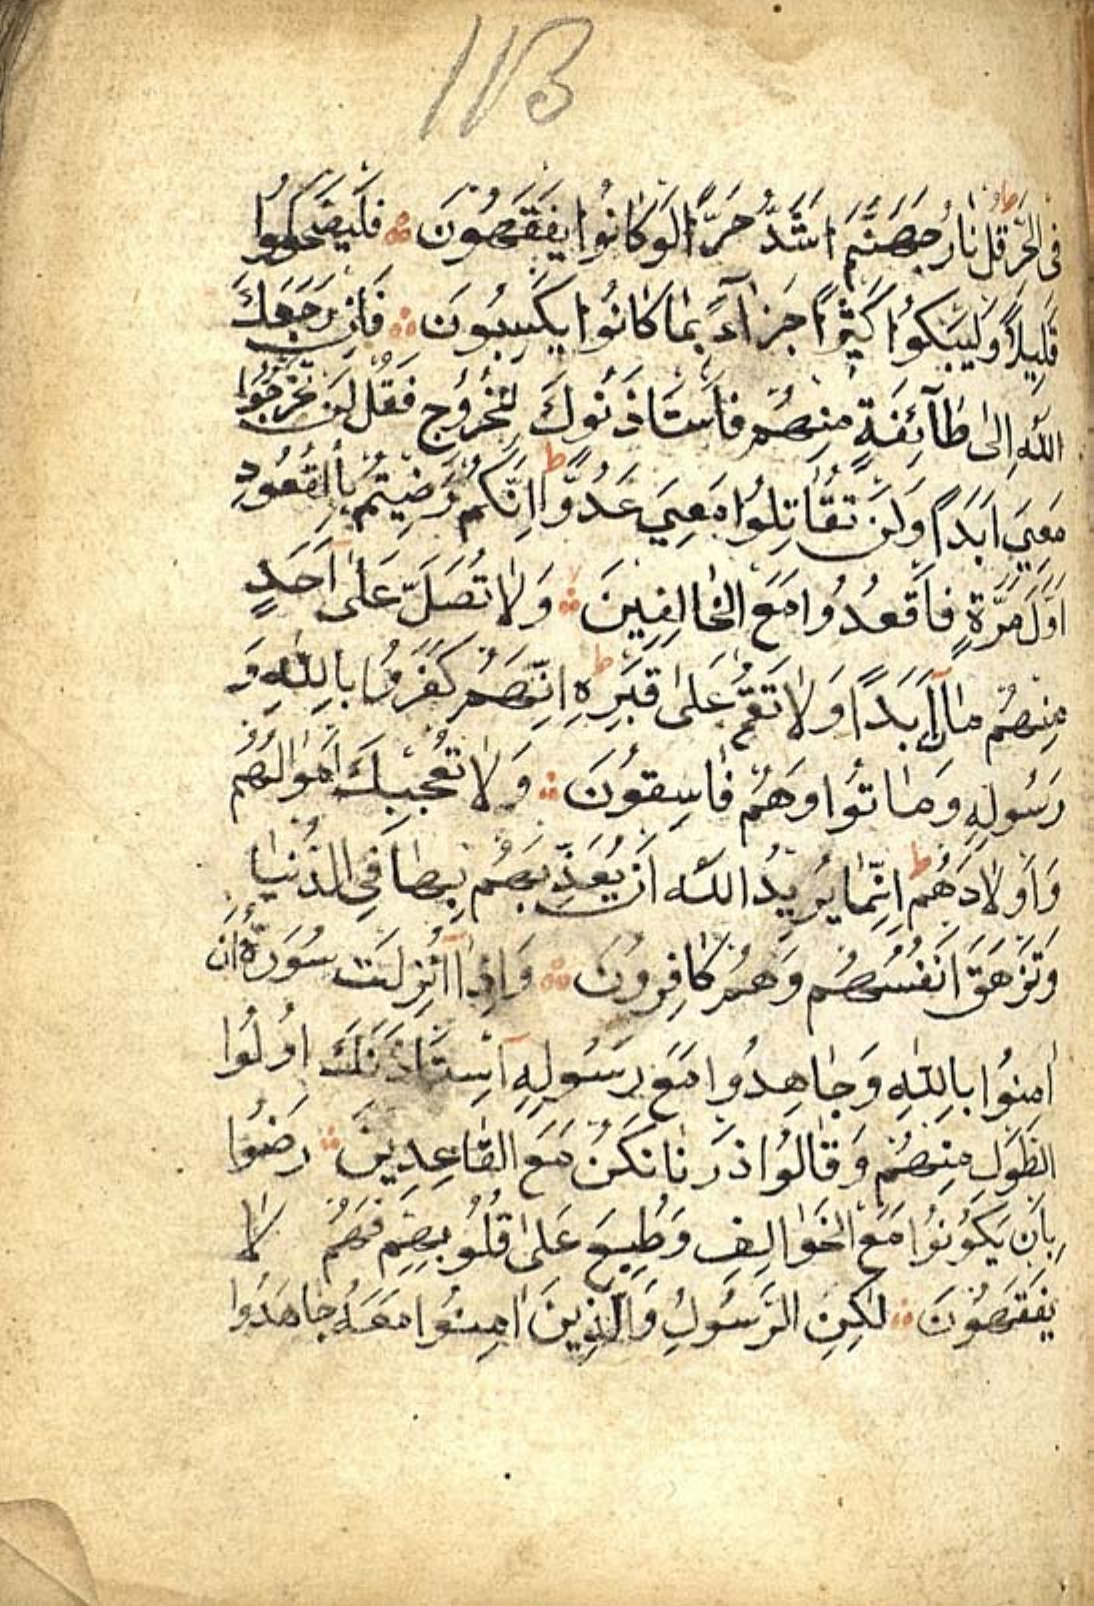 113
فِى الْحَرِّ قُلْ نَارُ جَهَنَّمَ اَشَدُّ حَرًّا لَوْ كَانُوا يَفْقَهُونَ فَلْيَضْحَكُوا
قَلِيلًا وَلْيَبْكُوا كَثِيرًا جَزَآءً بِمَا كَانُوا يَكْسِبُونَ فَاِنْ رَجَعَكَ
اللّٰهُ اِلٰى طَآئِفَةٍ مِنْهُمْ فَاسْتَاْذَنُوكَ لِلْخُرُوجِ فَقُلْ لَنْ تَخْرُجُوا
مَعِيَ اَبَدًا وَلَنْ تُقَاتِلُوا مَعِيَ عَدُوًّا اِنَّكُمْ رَضِيتُمْ بِالْقُعُودِ
اَوَّلَ مَرَّةٍ فَاقْعُدُوا مَعَ الْخَالِفِينَ وَلَا تُصَلِّ عَلٰى اَحَدٍ
مِنْهُمْ مَاتَ اَبَدًا وَلَا تَقُمْ عَلٰى قَبْرِهِ اِنَّهُمْ كَفَرُوا بِاللّٰهِ وَ
رَسُولِهِ وَمَاتُوا وَهُمْ فَاسِقُونَ وَلَا تُعْجِبْكَ اَمْوَالُهُمْ
وَاَوْلَادُهُمْ اِنَّمَا يُرِيدُ اللّٰهُ اَنْ يُعَذِّبَهُمْ بِهَا فِى الدُّنْيَا
وَتَزْهَقَ اَنْفُسُهُمْ وَهُمْ كَافِرُونَ وَاِذَا اُنْزِلَتْ سُورَةٌ اَنْ
اٰمِنُوا بِاللّٰهِ وَجَاهِدُوا مَعَ رَسُولِهِ اسْتَاْذَنَكَ اُولُوا
الطَّوْلِ مِنْهُمْ وَقَالُوا ذَرْنَا نَكُنْ مَعَ الْقَاعِدِينَ رَضُوا
بِاَنْ يَكُونُوا مَعَ الْخَوَالِفِ وَطُبِعَ عَلٰى قُلُوبِهِمْ فَهُمْ لَا
يَفْقَهُونَ لٰكِنِ الرَّسُولُ وَالَّذِينَ اٰمَنُوا مَعَهُ جَاهَدُوا